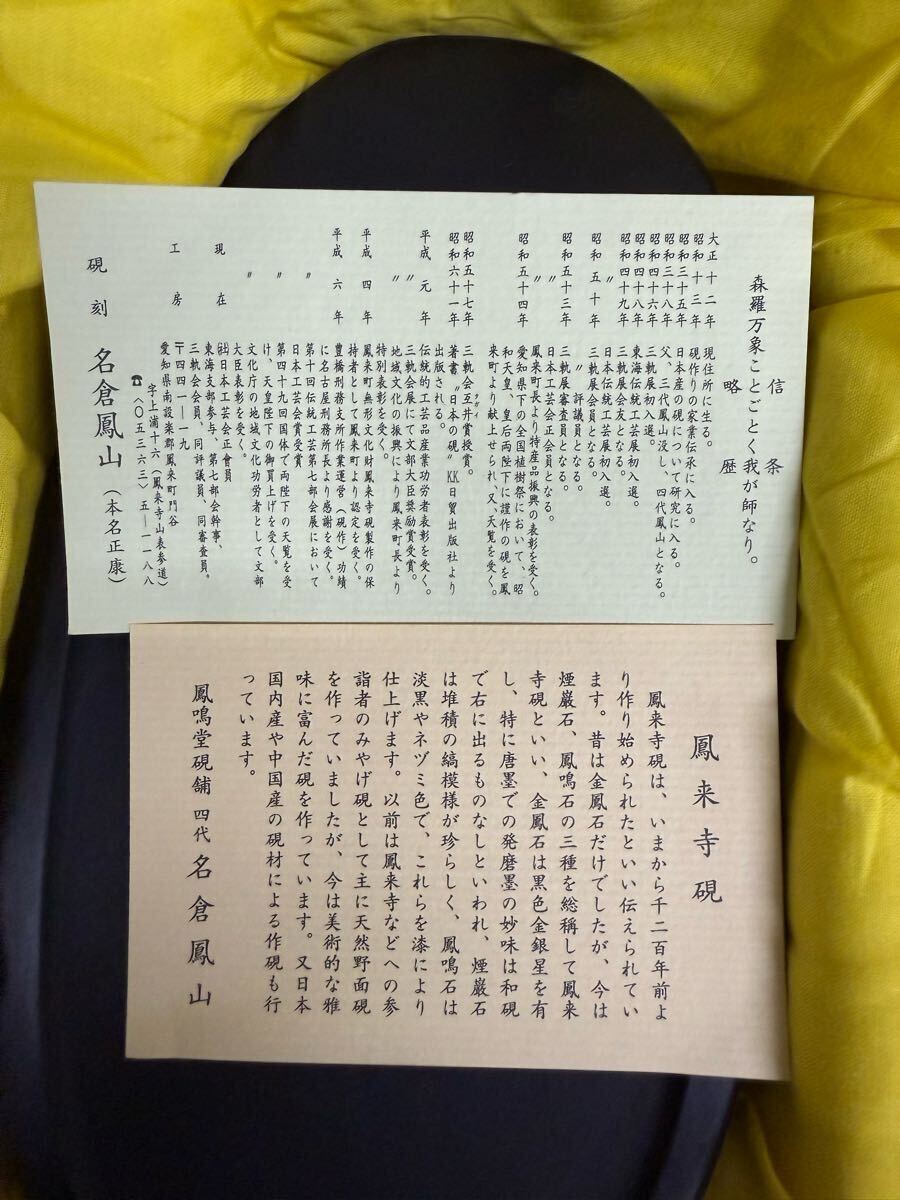 信条
森羅万象ことごとく我が師なり。
略歴
大正十二年 現住所に生る。
昭和十三年 硯作りの家業伝承に入る。
昭和三十五年 日本産の硯について研究に入る。
昭和三十八年 父、三代鳳山没し、四代鳳山となる。
昭和四十六年 三軌展初入選。
昭和四十八年 東海伝統工芸展初入選。
昭和四十九年 三軌展会友となる。
日本伝統工芸展初入選。
昭和五十年 三軌展会員となる。
〃 〃 評議員となる。
昭和五十三年 三軌展審査員となる。
〃 日本工芸会正会員となる。
〃 鳳来町長より特産品振興の表彰を受く。
昭和五十四年 愛知県下の全国植樹祭において、昭
和天皇、皇后両陛下に謹作の硯を鳳
来町より献上せられ、又、天覧を受く。
昭和五十七年 三軌会五井賞授賞。
昭和六十一年 著書〝日本の硯〟KK日貿出版社より
出版される。
平成元年 伝統的工芸品産業功労者表彰を受く。
〃 三軌会展にて文部大臣奨励賞受賞。
〃 地域文化の振興により鳳来町長より
特別表彰を受く。
平成四年 鳳来町無形文化財鳳来寺硯製作の保
持者として鳳来町より認定を受く。
平成六年 豊橋刑務支所作業運営(硯作)功績
に名古屋刑務所長より感謝を受く。
〃 第十回伝統工芸第七部会展において
日本工芸会賞受賞
〃 第四十九回国体で両陛下の天覧を受
け、天皇陛下の御買上げを受く。
〃 文化庁の地域文化功労者として文部
大臣表彰を受く。
現在 ㈳日本工芸会正会員
東海支部参与、第七部会幹事、
三軌会会員、同評議員、同審査員。
工房 〒四四一―一九
愛知県南設楽郡鳳来町門谷
字上浦十六(鳳来寺山表参道)
☎(〇五三六三)五―一一八八
硯刻 名倉鳳山(本名正康)
鳳来寺硯
鳳来寺硯は、いまから千二百年前よ
り作り始められたといい伝えられてい
ます。昔は金鳳石だけでしたが、今は
煙巌石、鳳鳴石の三種を総称して鳳来
寺硯といい、金鳳石は黒色金銀星を有
し、特に唐墨での発磨墨の妙味は和硯
で右に出るものなしといわれ、煙巌石
は堆積の縞模様が珍らしく、鳳鳴石は
淡黒やネヅミ色で、これらを漆により
仕上げます。以前は鳳来寺などへの参
詣者のみやげ硯として主に天然野面硯
を作っていましたが、今は美術的な雅
味に富んだ硯を作っています。又日本
国内産や中国産の硯材による作硯も行
っています。
鳳鳴堂硯舗 四代 名倉鳳山